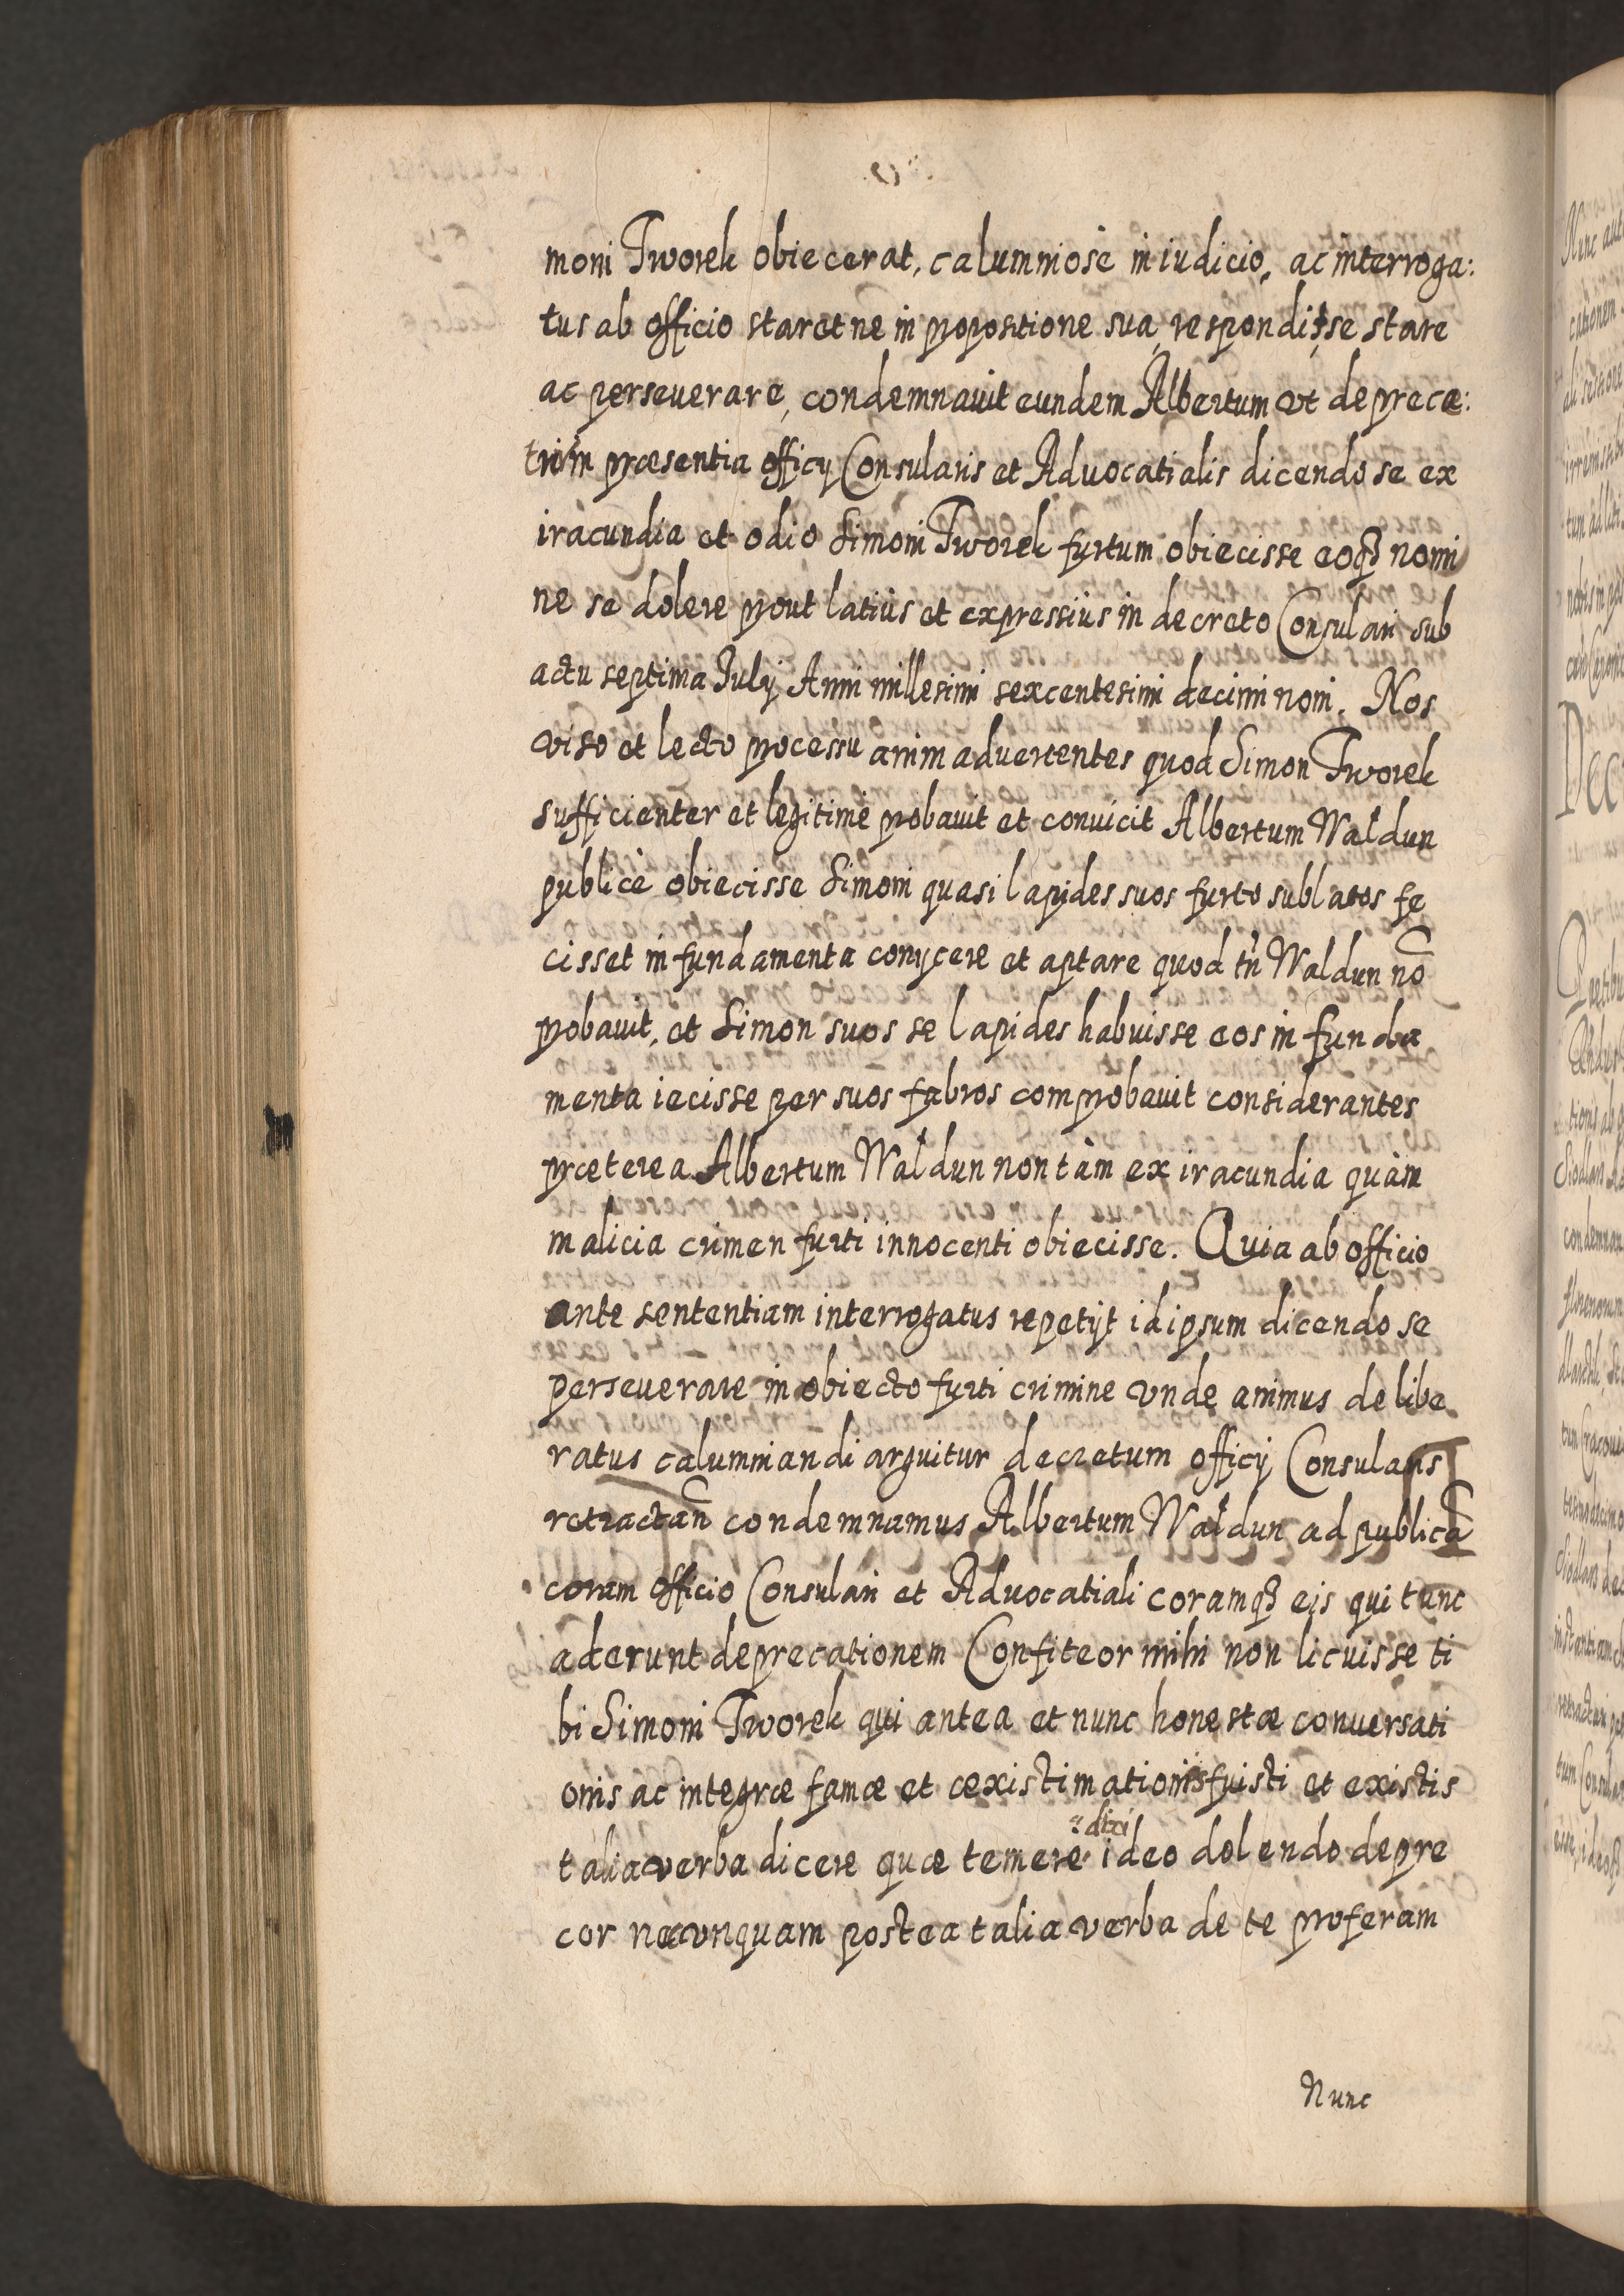 moni Tworek obiecerat, calumniosè in iudicio, ac interroga:
tus ab officio staretne in propositione sua, respondisse stare
ac perseuerare, condemnauit eundem Albertum vt depreca:
in præsentia officÿ Consularis et Aduocatialis dicendo se ex
iracundia et odio Simoni Tworek furtum obiecisse eoq3 nomi
ne se dolere prout latiùs et expressiùs in decreto Consulari sub
actu septima Julÿ Anni millesimi sexcentesimi decimi noni. Nos
viso et lecto processu animaduertentes quod Simon Tworek
sufficienter et legitimè probauit et conuicit Albertum Waldun
publicè obiecisse Simoni quasi lapides suos furto sublatos fe
cisset in fundamenta conÿcere et aptare quod tn̄ Waldun nō
probauit, et Simon suos se lapides habuisse eos in funda
menta iecisse per suos fabros comprobauit considerantes
præterea Albertum Waldun non tàm ex iracundia quàm
malicia crimen furti innocenti obiecisse. Quia ab officio
ante sententiam interrogatus repetÿt idipsum dicendo se
perseuerare in obiecto furti crimine vnde animus delibe
ratus calumniandi arguitur decretum officÿ Consularis
retractan̄ condemnamus Albertum Waldun ad publicā
coram officio Consulari et Aduocatiali coramq3 eis qui tunc
aderunt deprecationem Confiteor mihi non licuisse ti
bi Simoni Tworek qui antea et nunc honestæ conuersati
onis ac integræ famæ et æxistimationis fuisti et existis
dixi
talia verba dicere quæ temerè ideo dolendo depre
cor nec vnquam postea talia verba de te proferam
Nunc